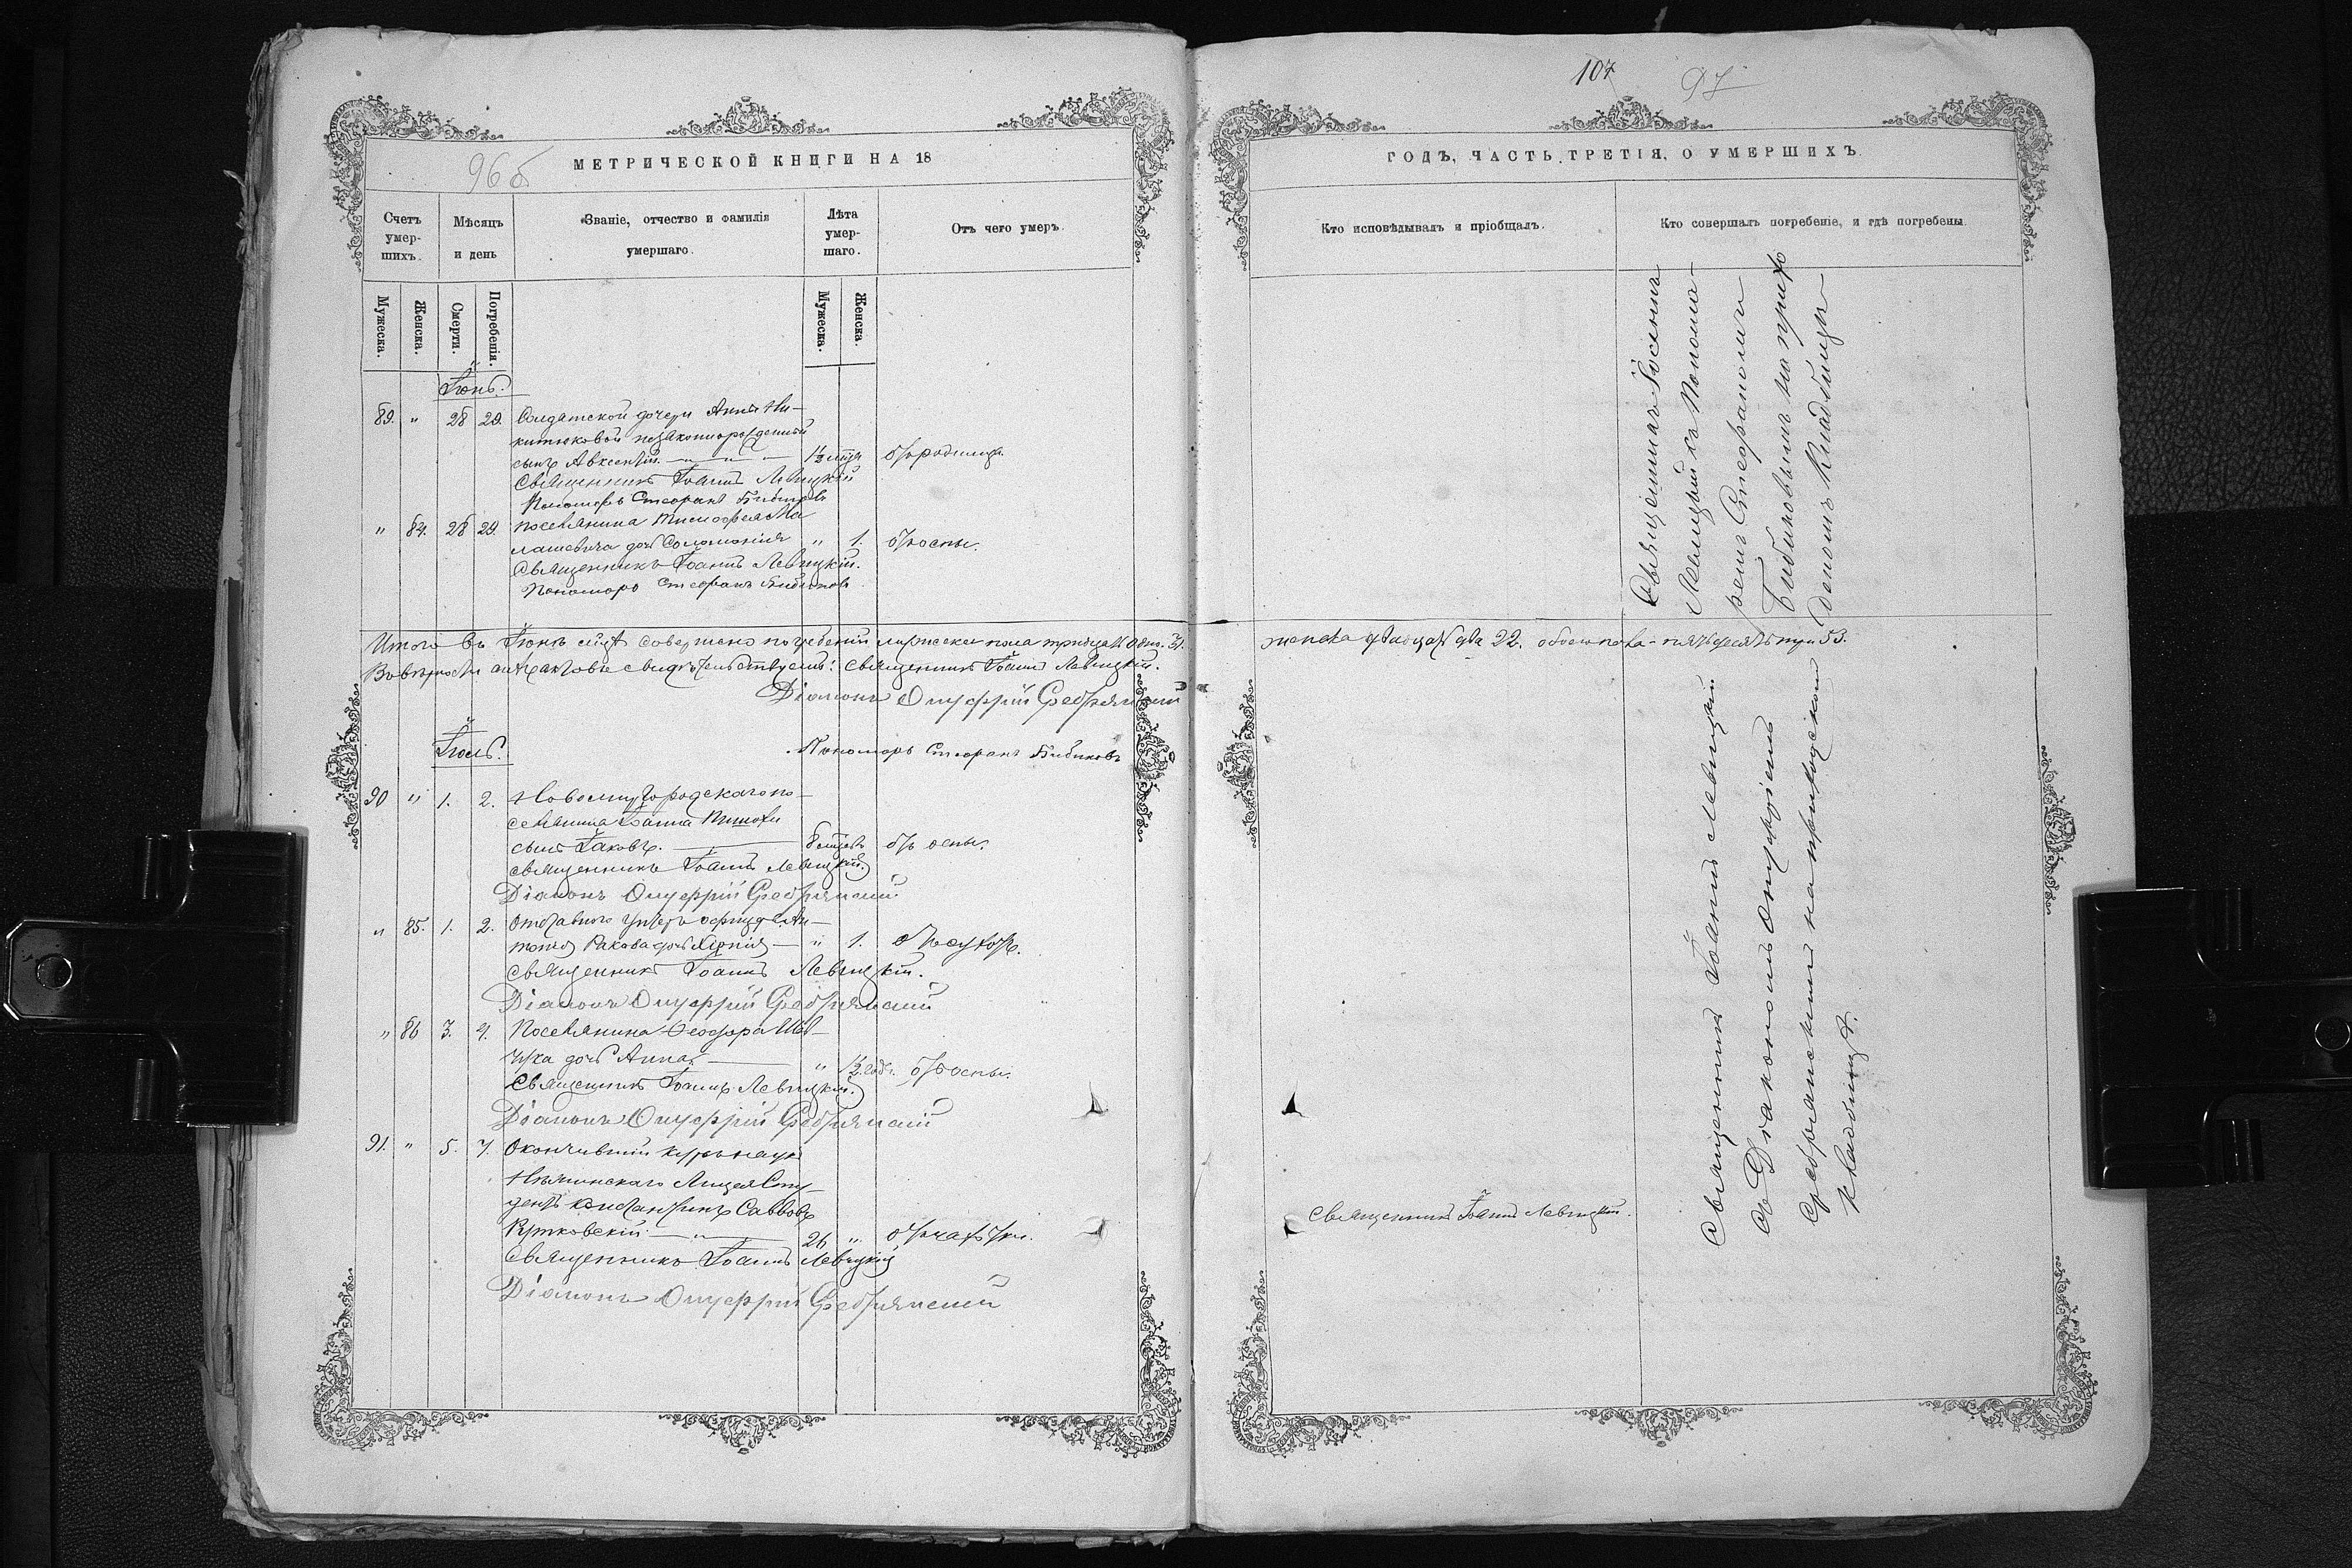 96б
МЕТРИЧЕСКОЙ КНИГИ НА 18
Счетъ умер-шихъ.
Мѣсяцъ и день
Званіе, отчество и фамилія умершаго.
Лѣта умер-шаго.
Отъ чего умеръ.
Мужеска.
Женска.
Смерти.
Погребенія.
Мужеска.
Женска.
Іюнь.
89. " 28 29. Солдатской дочери Анны Ни-
китюковой незаконнорожденный
сынъ Авксентій 1½ отъ родимца.
Священникъ Іоаннъ Левицкій
Пономарь Стефанъ Бибиковъ
" 84. 28 29. поселянина Тимофея Ма
лашевича дочь Соломонія " 1. отъ оспы.
Священникъ Іоаннъ Левицкій.
Пономарь Стефанъ Бибиковъ
Итого въ Іюнѣ мѣсяцѣ совершено погребеній мужеска пола тридцать одно. 31.
Въ вѣрности актовъ свидѣтельствуемъ: Священникъ Іоаннъ Левицкій.
Діаконъ Онуфрій Сребрянскій
Пономарь Стефанъ Бибиковъ
Іюль.
90 " 1. 2. Новомиргородскаго по-
селянина Іоанна
сынъ Іаковъ. 8 отъ оспы.
священникъ Іоаннъ Левицкій
Діаконъ Онуфрій Сребрянскій
" 85. 1. 2. Отставного унтеръ офицера Ан-
тонія Ракова дочь " 1.
священникъ Іоаннъ Левицкій.
Діаконъ Онуфрій Сребрянскій
" 86 3. 4. Поселянина Феодора Шев-
чука дочь Анна " ½ года. отъ оспы.
Священникъ Іоаннъ Левицкій.
Діаконъ Онуфрій Сребрянскій
91. " 5. 7. Окончившій курсъ наукъ
Нѣжинскаго Лицея Сту-
дентъ Константинъ Саввовъ
26 " отъ чахотки.
Священникъ Іоаннъ Левицкій
Діаконъ Онуфрій Сребрянскій
107
97
ГОДЪ, ЧАСТЬ ТРЕТІЯ, О УМЕРШИХЪ.
Кто исповѣдывалъ и пріобщалъ.
Кто совершалъ погребеніе, и гдѣ погребены.
Священникъ Іоаннъ
Левицкій съ Понома-
ремъ Стефаномъ
Бибиковымъ на прихо
дскомъ кладбищѣ
женска двадцать два 22. обоего пола - пятьдесятъ три 53.
Священникъ Іоаннъ Левицкій
съ Діакономъ Онуфріемъ
Сребрянскимъ на приходскомъ
кладбищѣ.
Священникъ Іоаннъ Левицкій.